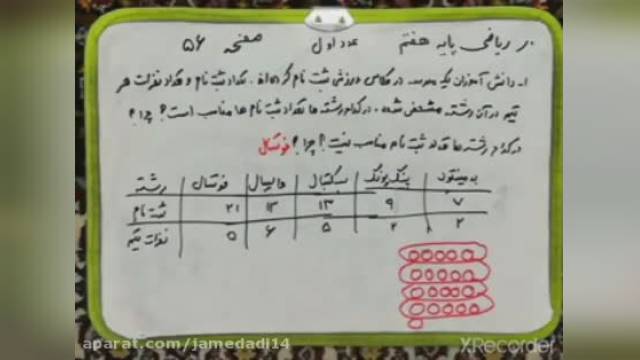 ریاضی پایه هفتم عدد اول صفحه ۵۶
۱- دانش آموزان یک مدرسه در کلاس ورزشی ثبت نام کرده اند. تعداد ثبت نام و تعداد نفرات هر
تیم در آن رشته مشخص شده. در کدام رشته ها تعداد ثبت نام ها مناسب است؟ چرا؟
در کدام رشته ها تعداد ثبت نام مناسب نیست؟ چرا؟ فوتسال
رشته فوتسال والیبال بسکتبال پینگ پونگ بدمینتون
ثبت نام ۲۱ ۱۳ ۱۳ ۹ ۷
نفرات تیم ۵ ۶ ۵ ۲ ۲
aparat.com/jamedadi14
XRecorder